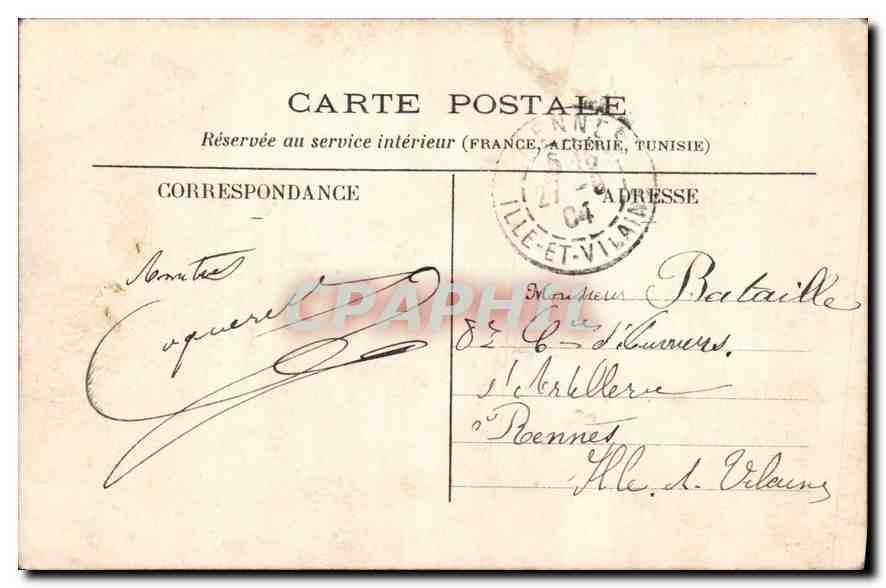 CARTE POSTALE
Réservée au service intérieur (FRANCE, ALGÉRIE, TUNISIE)
CORRESPONDANCE
ADRESSE
RENNES
27
04
ILLE-ET-VILAINE
Amitiés
Coquerel
CPAPHIL
Monsieur Bataille
8e Cie d'Ouvriers
d'Artillerie
à Rennes
Ille-et-Vilaine